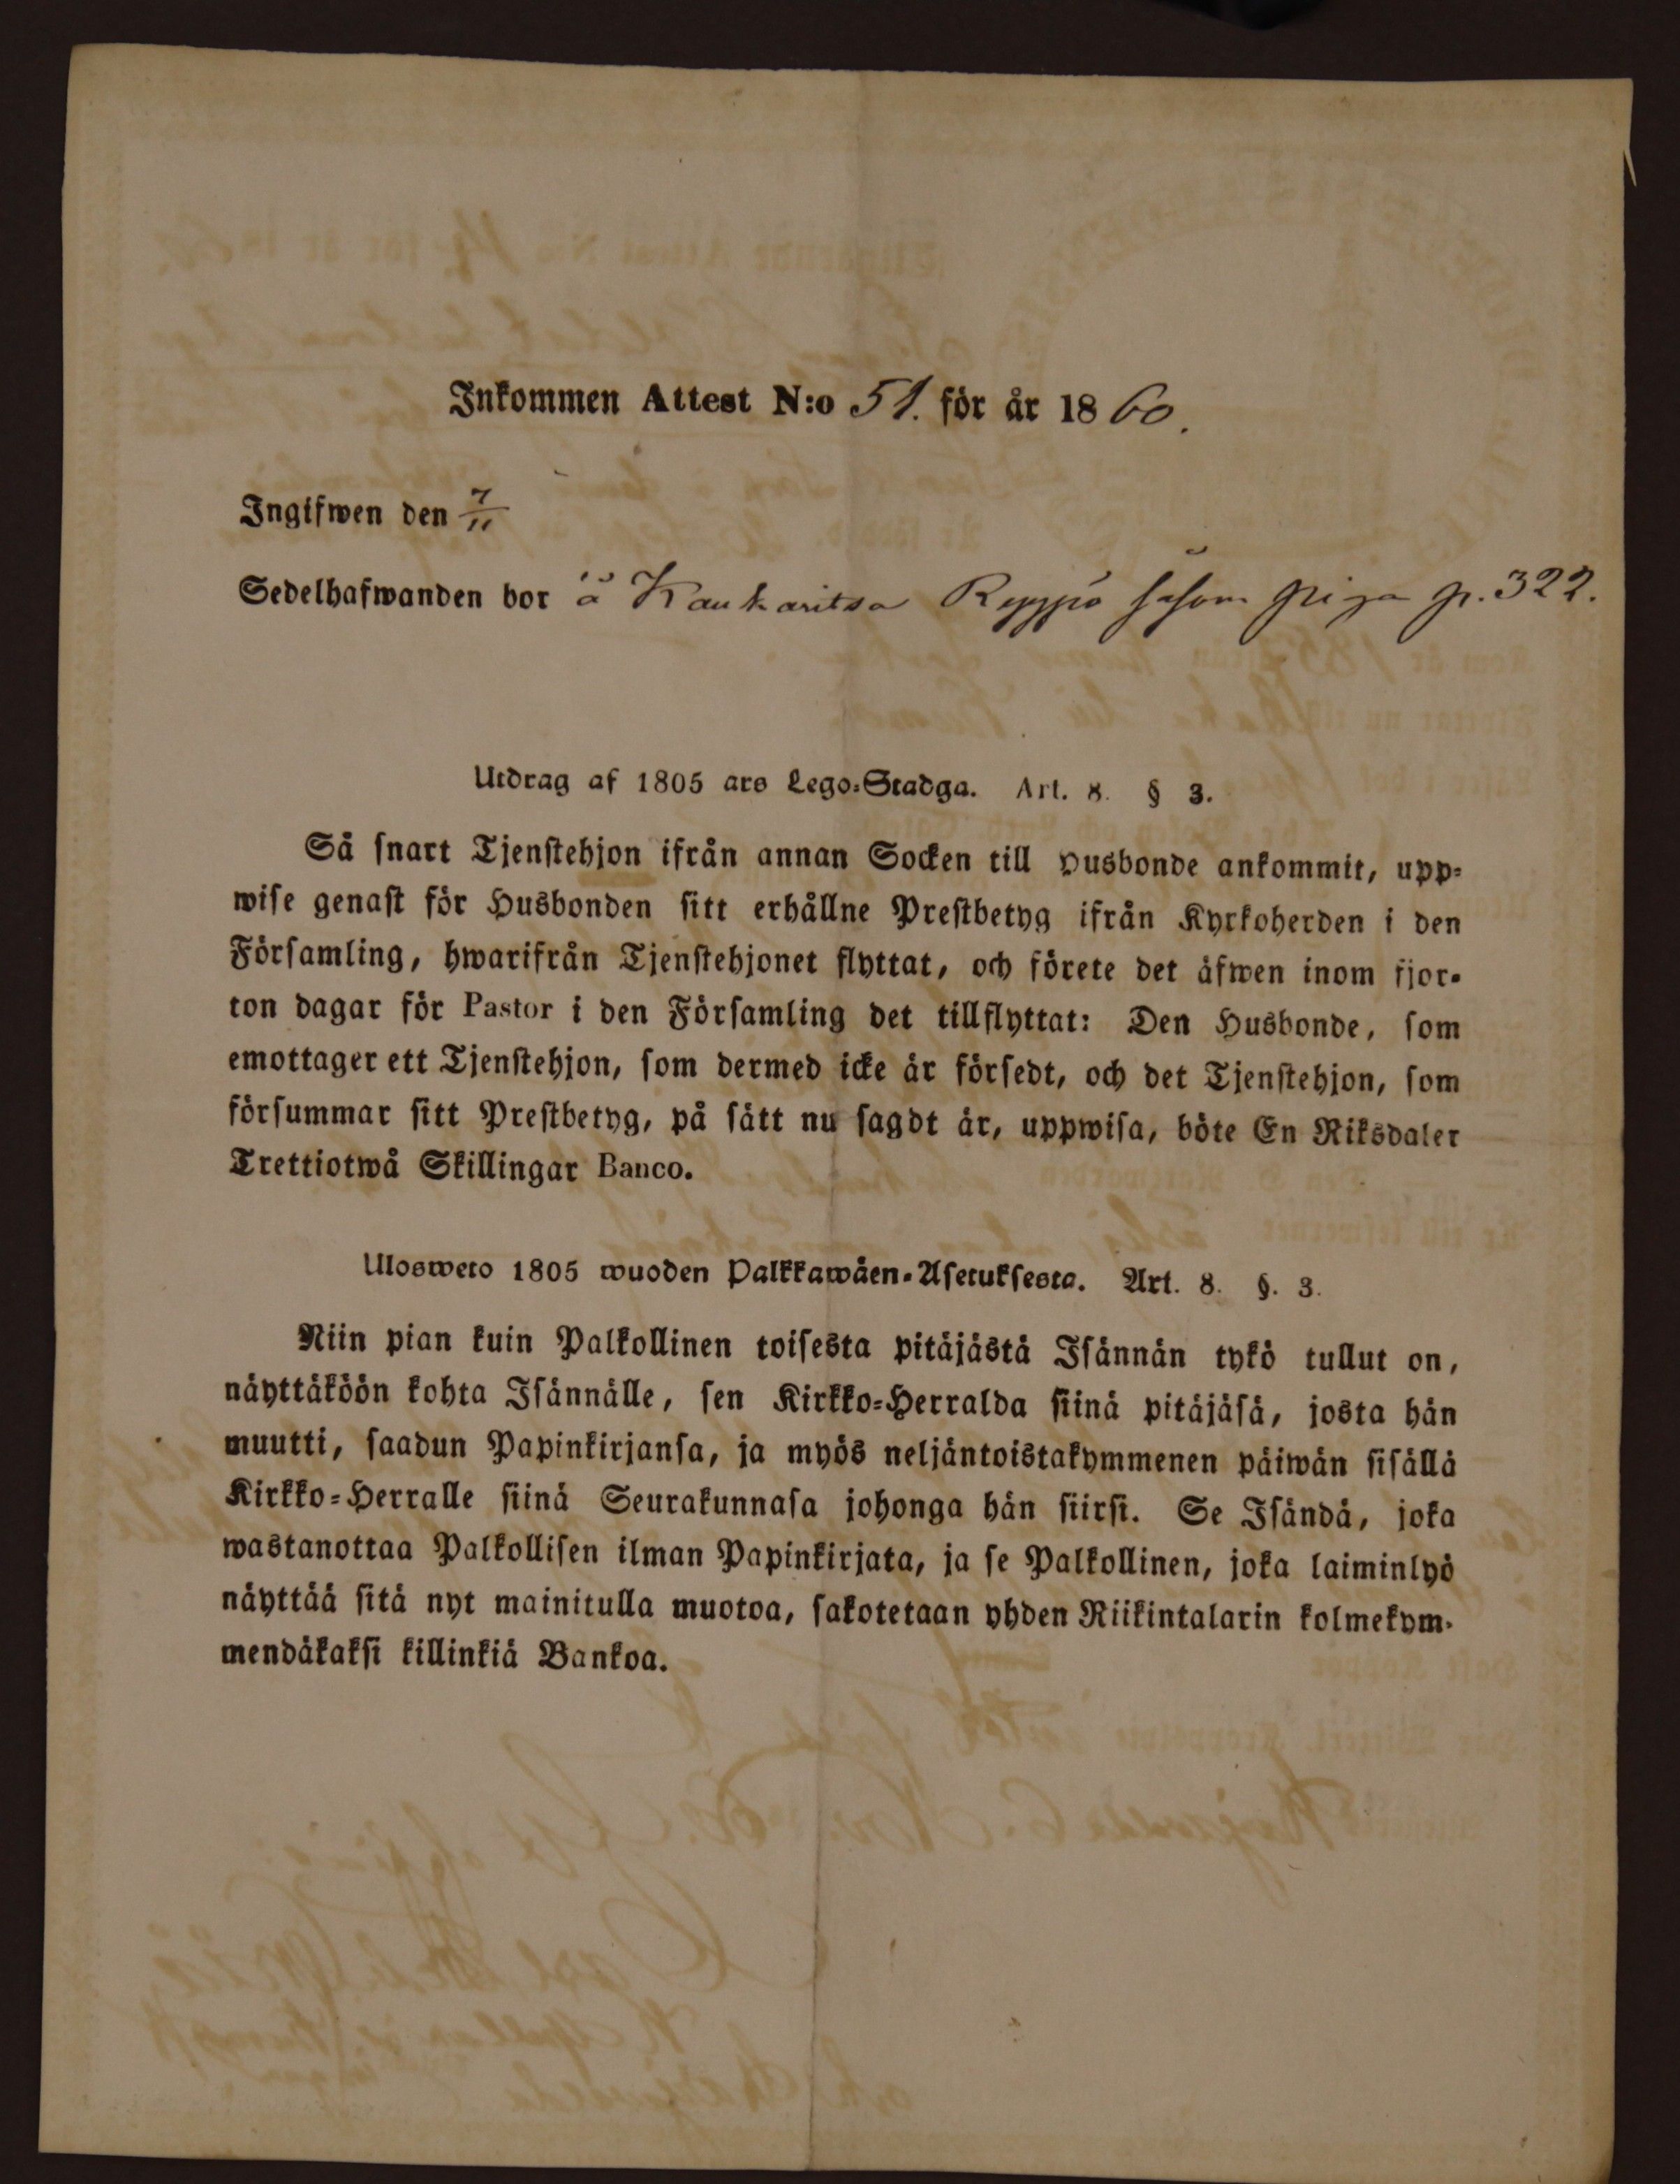 Inkommen Attest N:o 51. för år 1860.
Ingifwen den 7/11
Sedelhafwanden bor å Kaukaritsa Reppo såsom piga p. 322.
Utdrag af 1805 ars Lego-Stadga. Art. 8. § 3.
Så snart Tjenstehjon ifrån annan Socken till Husbonde ankommit, upp-
wise genast för Husbonden sitt erhållne Prestbetyg ifrån Kyrkoherden i den
Församling, hwarifrån Tjenstehjonet flyttat, och förete det äfwen inom fjor-
ton dagar för Pastor i den Församling det tillflyttat: Den Husbonde, som
emottager ett Tjenstehjon, som dermed icke är försedt, och det Tjenstehjon, som
försummar sitt Prestbetyg, på sätt nu sagdt är, uppwisa, böte En Riksdaler
Trettiotwå Skillingar Banco.
Ulosweto 1805 wuoden Palkkawäen-Asetuksesta. Art. 8. §. 3.
Niin pian kuin Palkollinen toisesta pitäjästä Isännän tykö tullut on,
näyttäköön kohta Isännälle, sen Kirkko-Herralda siinä pitäjäsä, josta hän
muutti, saadun Papinkirjansa, ja myös neljäntoistakymmenen päiwän sisällä
Kirkko-Herralle siinä Seurakunnasa johonga hän siirsi. Se Isändä, joka
wastanottaa Palkollisen ilman Papinkirjata, ja se Palkollinen, joka laiminlyö
näyttää sitä nyt mainitulla muotoa, sakotetaan yhden Riikintalarin kolmekym-
mendäkaksi killinkiä Bankoa.